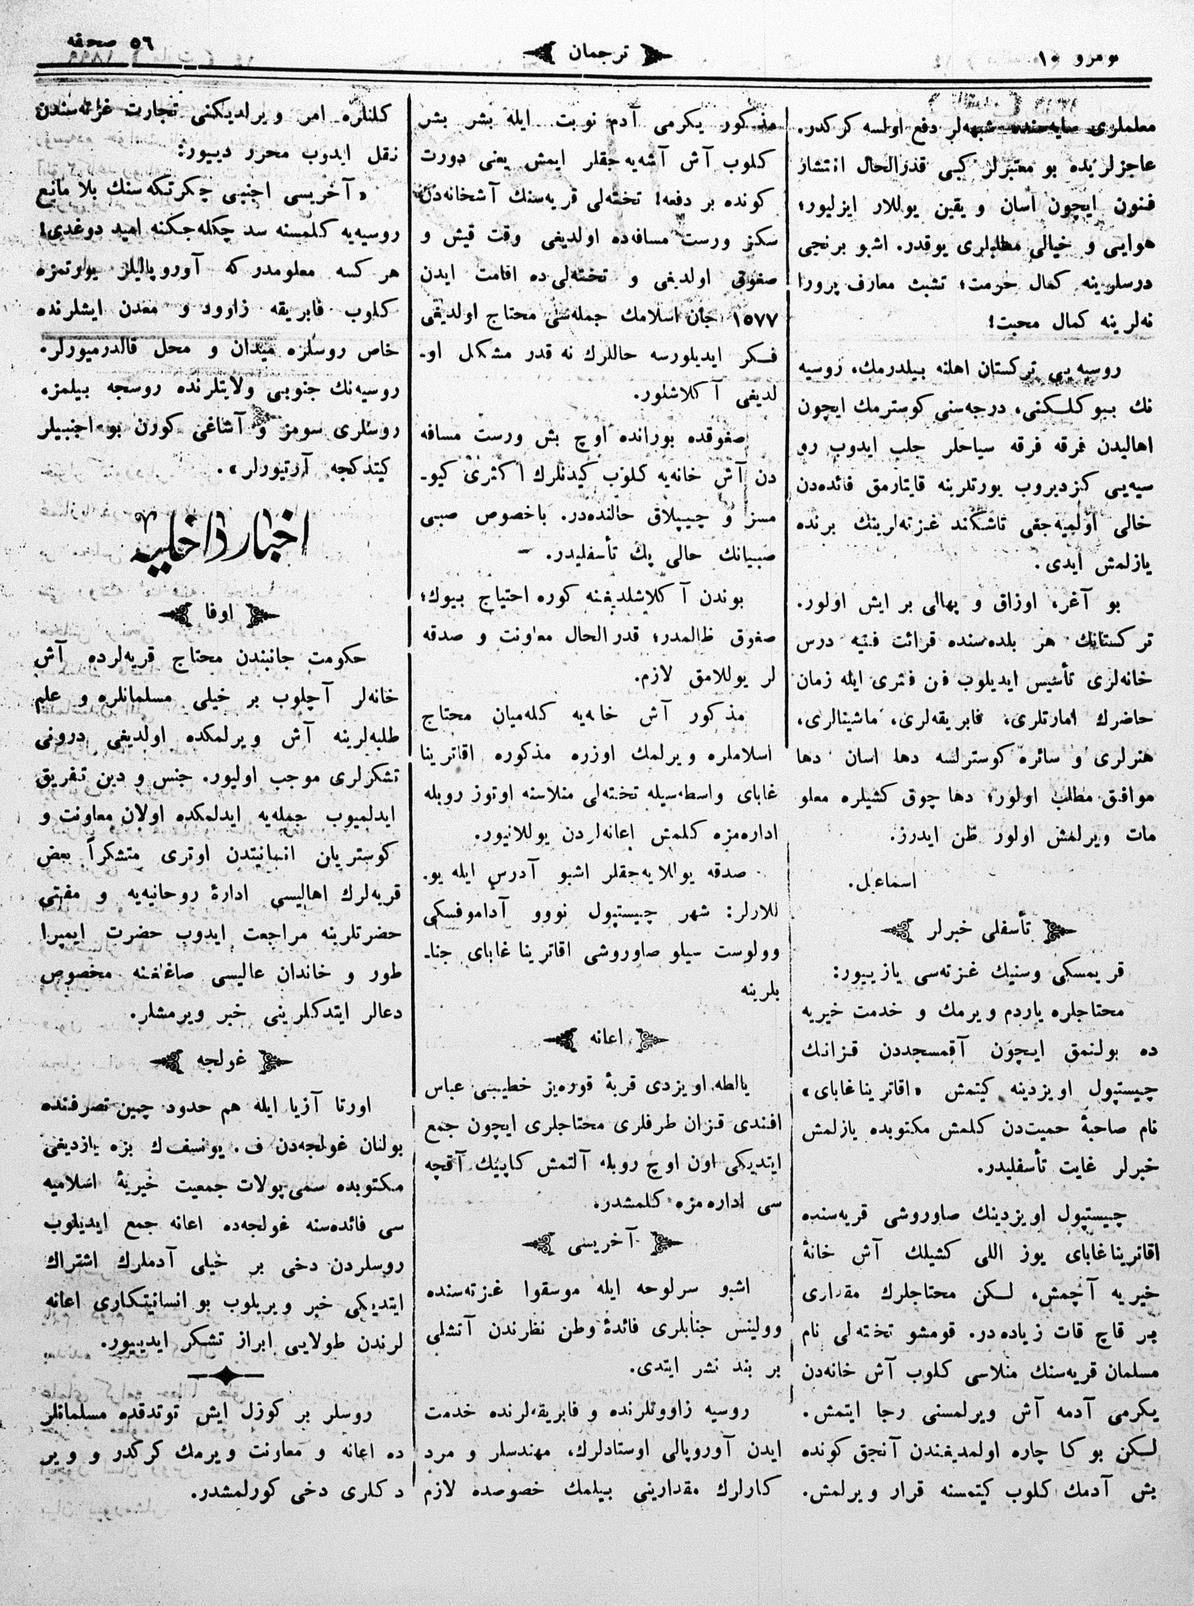 نومرو ١٠
ترجمان
٥٦ صحیفه
معلملری سایه‌سنده شبهه‌لر دفع اولسه کرکدر.
عاجزلریده بو معتبرلر کبی قدرالحال انتشار
فنون ایچون آسان و یقین یوللار ایزلیور؛
هوایی و خیالی مطلبلری یوقدر. اشبو برنجی
درسلرینه کمال حرمت؛ تشبث معارف پرورا
نه‌لرینه کمال محبت!
روسیه‌یی ترکستان اهلنه بیلدرمك، روسیه
نك بیوکلکنی، درجه‌سنی کوسترمك ایچون
اهالیدن فرقه فرقه سیاحلر جلب ایدوب رو
سیه‌یی کزدیروب یورتلرینه قایتارمق فائده‌دن
خالی اولمیه‌جقی تاشکند غزته‌لرینك برنده
یازلمش ایدی.
بو آغر، اوزاق و بهالی بر ایش اولور.
ترکستانك هر بلده‌سنده قرائت فنیه درس
خانه‌لری تأسیس ایدیلوب فن فنری ایله زمان
حاضرك امارتلری، فابریقه‌لری، ماشینالری،
هنرلری و سائره کوسترلسه دها اسان دها
موافق مطلب اولور؛ دها چوق کشیلره معلو
مات ویرلمش اولور ظن ایدرز.
اسماعیل.
تأسفلی خبرلر
قریمسکی وسنیك غزته‌سی یازییور:
محتاجلره یاردم ویرمك و خدمت خیریه
ده بولنمق ایچون آقمسجددن قزانك
چیستپول اویزدینه کیتمش «اقاترینا غابای»
نام صاحبهٔ حمیت‌دن کلمش مکتوبده یازلمش
خبرلر غایت تأسفلیدر.
چیستپول اویزدینك صاوروشی قریه‌سنده
اقاتریناغابای یوز اللی کشیلك آش خانهٔ
خیریه آچمش، لکن محتاجلرك مقداری
بر قاچ قات زیاده‌در. قومشو تخته‌لی نام
مسلمان قریه‌سنك منلاسی کلوب آش خانه‌دن
یکرمی آدمه آش ویرلمسنی رجا ایتمش.
لکن بوکا چاره اولمدیغندن آنجق کونده
بش آدمك کلوب کیتمسنه قرار ویرلمش.
مذکور یکرمی آدم نوبت ایله بشر بشر
کلوب آش آشه‌یه‌جقلر ایمش یعنی دورت
کونده بر دفعه! تخته‌لی قریه‌سنك آشخانه‌دن
سکز ورست مسافه‌ده اولدیغی وقت قیش و
صغوقی اولدیغی و تخته‌لی‌ده اقامت ایدن
١٥٧٧ جان اسلامك جمله‌سی محتاج اولدیغی
فکر ایدیلورسه حاللرك نه قدر مشکل او-
لدیغی آکلاشلور.
صغوقده بورانده اوچ بش ورست مسافه
دن آش خانه‌یه کلوب کیدنلرك اکثری کیو-
مسز و چیپلاق حالنده‌در. باخصوص صبی
صبیانك حالی پك تأسفلیدر. -
بوندن آکلاشلدیغنه کوره احتیاج بیوك؛
صغوق ظالمدر؛ قدرالحال معاونت و صدقه
لر یوللامق لازم.
مذکور آش خانه‌یه کله‌میان محتاج
اسلاملره ویرلمك اوزره مذکوره اقاترینا
غابای واسطه‌سیله تخته‌لی منلاسنه اوتوز روبله
اداره‌مزه کلمش اعانه‌لردن یوللانیور.
صدقه یوللایه‌جقلر اشبو آدرس ایله یو-
للارلر: شهر چیستپول نووو آداموفسکی
وولوست سیلو صاوروشی اقاترینا غابای جنا-
بلرینه
اعانه
یالطه اویزدی قریهٔ قوره‌یز خطیبی عباس
افندی قزان طرفلری محتاجلری ایچون جمع
ایتدیکی اون اوچ روبله آلتمش کاپیك آقچه
سی اداره‌مزه کلمشدر.
آخریسی
اشبو سرلوحه ایله موسقوا غزته‌سنده
وولینس جنابلری فائدهٔ وطن نظرندن آتشلی
بر بند نشر ایتدی.
روسیه زاووتلرنده و فابریقه‌لرنده خدمت
ایدن آوروپالی اوستادلرك، مهندسلر و مرد
کارلرك مقدارینی بیلمك خصوصده لازم
کلنلره امر ویرلدیکنی تجارت غزته‌سندن
نقل ایدوب محرر دییور:
«آخریسی اجنبی چکرتکه‌سنك بلا مانع
روسیه‌یه کلمسنه سد چکله‌جکنه امید دوغدی!
هر کسه معلومدرکه آوروپالیلر یورتمزه
کلوب فابریقه زاوود و معدن ایشلرنده
خاص روسلره میدان و محل قالدرمیورلر.
روسیه‌نك جنوبی ولایتلرنده روسجه بیلمز.
روسلری سومز و آشاغی کورن بو اجنبیلر
کیتدکجه آرتیورلر».
اخبار داخلیه
اوفا
حکومت جانبندن محتاج قریه‌لرده آش
خانه‌لر آچلوب بر خیلی مسلمانلره و علم
طلبه‌لرینه آش ویرلمکده اولدیغی درونی
تشکرلری موجب اولیور. جنس و دین تفریق
ایدلمیوب جمله‌یه ایدلمکده اولان معاونت و
کوستریلن انسانیتدن اوتری متشکراً بعض
قریه‌لرك اهالیسی ادارهٔ روحانیه‌یه و مفتی
حضرتلرینه مراجعت ایدوب حضرت ایمپرا
طور و خاندان عالیسی صاغلغنه مخصوص
دعالر ایتدکلرینی خبر ویرمشلر.
غولجه
اورتا آزیا ایله هم حدود چین تصرفنده
بولنان غولجه‌دن ف. یوسیفك بزه یازدیغی
مکتوبده سمی پولات جمعیت خیریهٔ اسلامیه
سی فائده‌سنه غولجه‌ده اعانه جمع ایدیلوب
روسلردن دخی بر خیلی آدملرك اشتراك
ایتدیکی خبر ویریلوب بو انسانیتکاری اعانه
لرندن طولایی ابراز تشکر ایدییور.
روسلر بر کوزل ایش توتدقده مسلمانلر
ده اعانه و معاونت ویرمك کرکدر و ویر
دکلری دخی کورلمشدر.